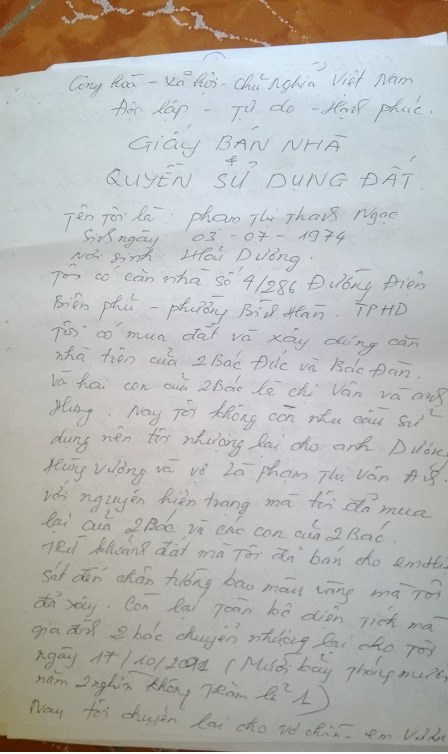 Công hoà - xã hôi - chủ nghĩa Việt Nam
Độc lập - Tư do - Hạnh phúc.
GIẤY BÁN NHÀ
&
QUYỀN SỬ DUNG ĐẤT.
Tên Tôi là: phạm Thị Thanh Ngọc
Sinh ngày 03 - 07 - 1974
Nơi sinh Hải Dương.
Tôi có căn nhà số 4/286 Đường Điện
Biên phủ - phường Bình Hàn. TPHD
Tôi có mua đất và xây dưng căn
nhà trên của 2 Bác Đức và Bác Đan.
và hai con của 2 Bác là chi Vân và anh
Hưng. Nay Tôi không còn nhu cầu sử
dung nên tôi nhương lai cho anh Dương
Hùng Vương và vơ Là phạm Thị Vân Anh.
với nguyên hiên trang mà tôi đã mua
lai của 2 Bác và các con của 2 Bác.
Trừ khoảnh đất mà Tôi đã bán cho
sát đến chân tường bao màu vàng mà Tôi
đã xây. Còn lai toan bô diên Tích mà
gia đình 2 bác chuyển nhương lai cho Tôi
ngày 17/10/2001 (Mười bảy Tháng mười
năm 2 nghìn không Trăm lẻ 1)
Nay tôi chuyển lai cho vơ chồng em